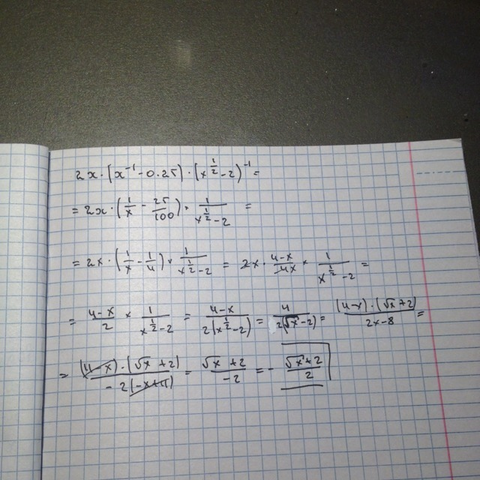 2x · (x⁻¹ - 0.25) · (x^(1/2) - 2)⁻¹ =
= 2x · (1/x - 25/100) × 1/(x^(1/2) - 2) =
= 2x · (1/x - 1/4) × 1/(x^(1/2) - 2) = 2x · (4-x)/(4x) × 1/(x^(1/2) - 2) =
= (4-x)/2 × 1/(x^(1/2) - 2) = (4-x)/(2(x^(1/2) - 2)) = 4/(2(√x - 2)) = ((4-x) · (√x + 2))/(2x - 8) =
= ((4-x) · (√x + 2))/(-2(-x+4)) = (√x + 2)/(-2) = - (√x + 2)/2